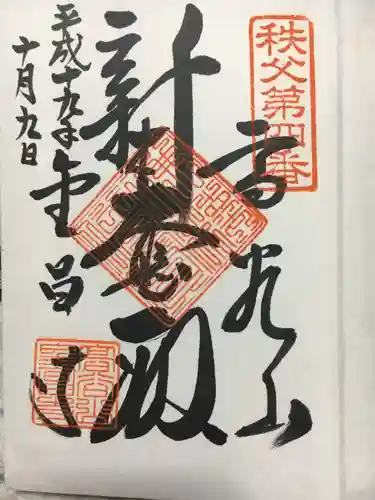 秩父第四番
高谷山
新
大悲殿
平成十九年
十月九日
金昌寺